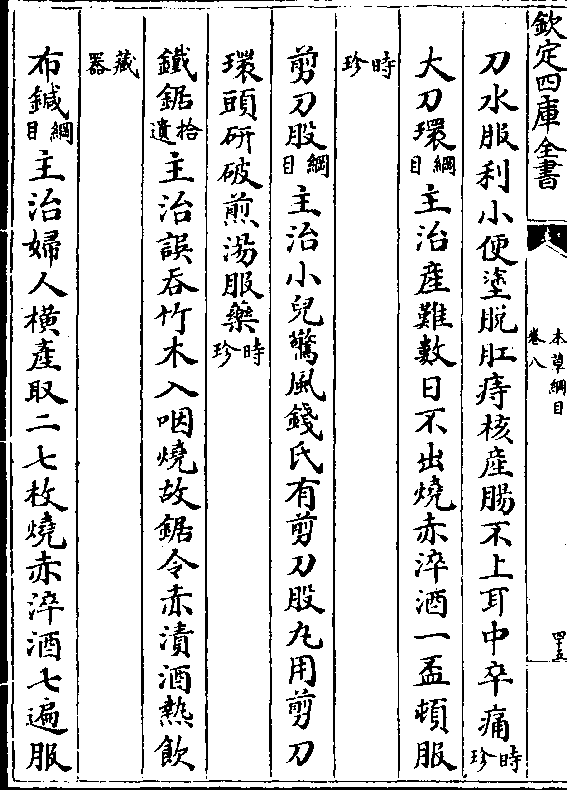 欽定四庫全書
本草綱目
卷八
四十五
刀水服利小便塗脱肛痔核産腸不上耳中卒痛時珍
大刀環綱目主治産難數日不出燒赤淬酒一盃頓服
時珍
剪刀股綱目主治小兒驚風錢氏有剪刀股丸用剪刀
環頭研破煎湯服藥時珍
鐵鋸拾遺主治誤吞竹木入咽燒故鋸令赤漬酒熱飲
藏器
布鍼綱目主治婦人橫産取二七枚燒赤淬酒七遍服